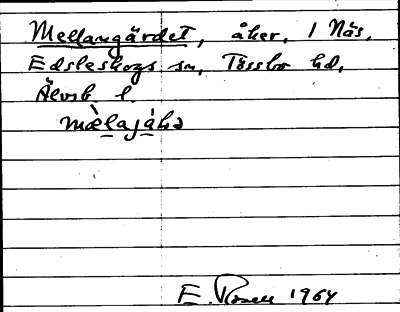 Mellangärdet, åker, 1 Näs,
Edsleskogs sn, Tössbo hd,
Älvsb. l.
E. Rosell 1964